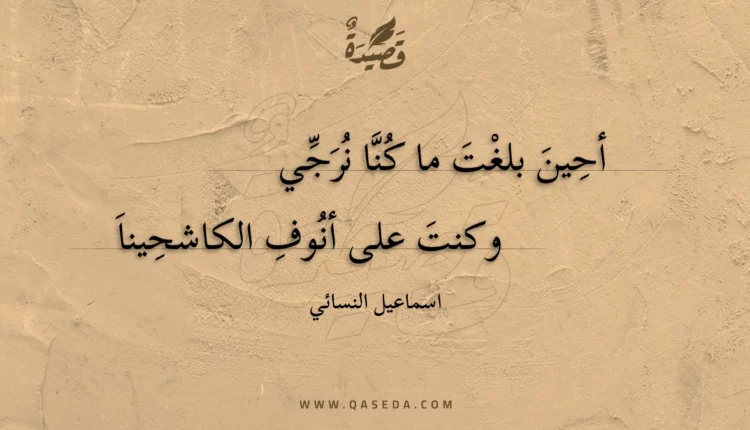 قَصِيدَةٌ
أحِينَ بلغْتَ ما كُنَّا نُرَجِّي
وكنتَ على أنُوفِ الكاشحِيناَ
اسماعيل النسائي
WWW.QASEDA.COM